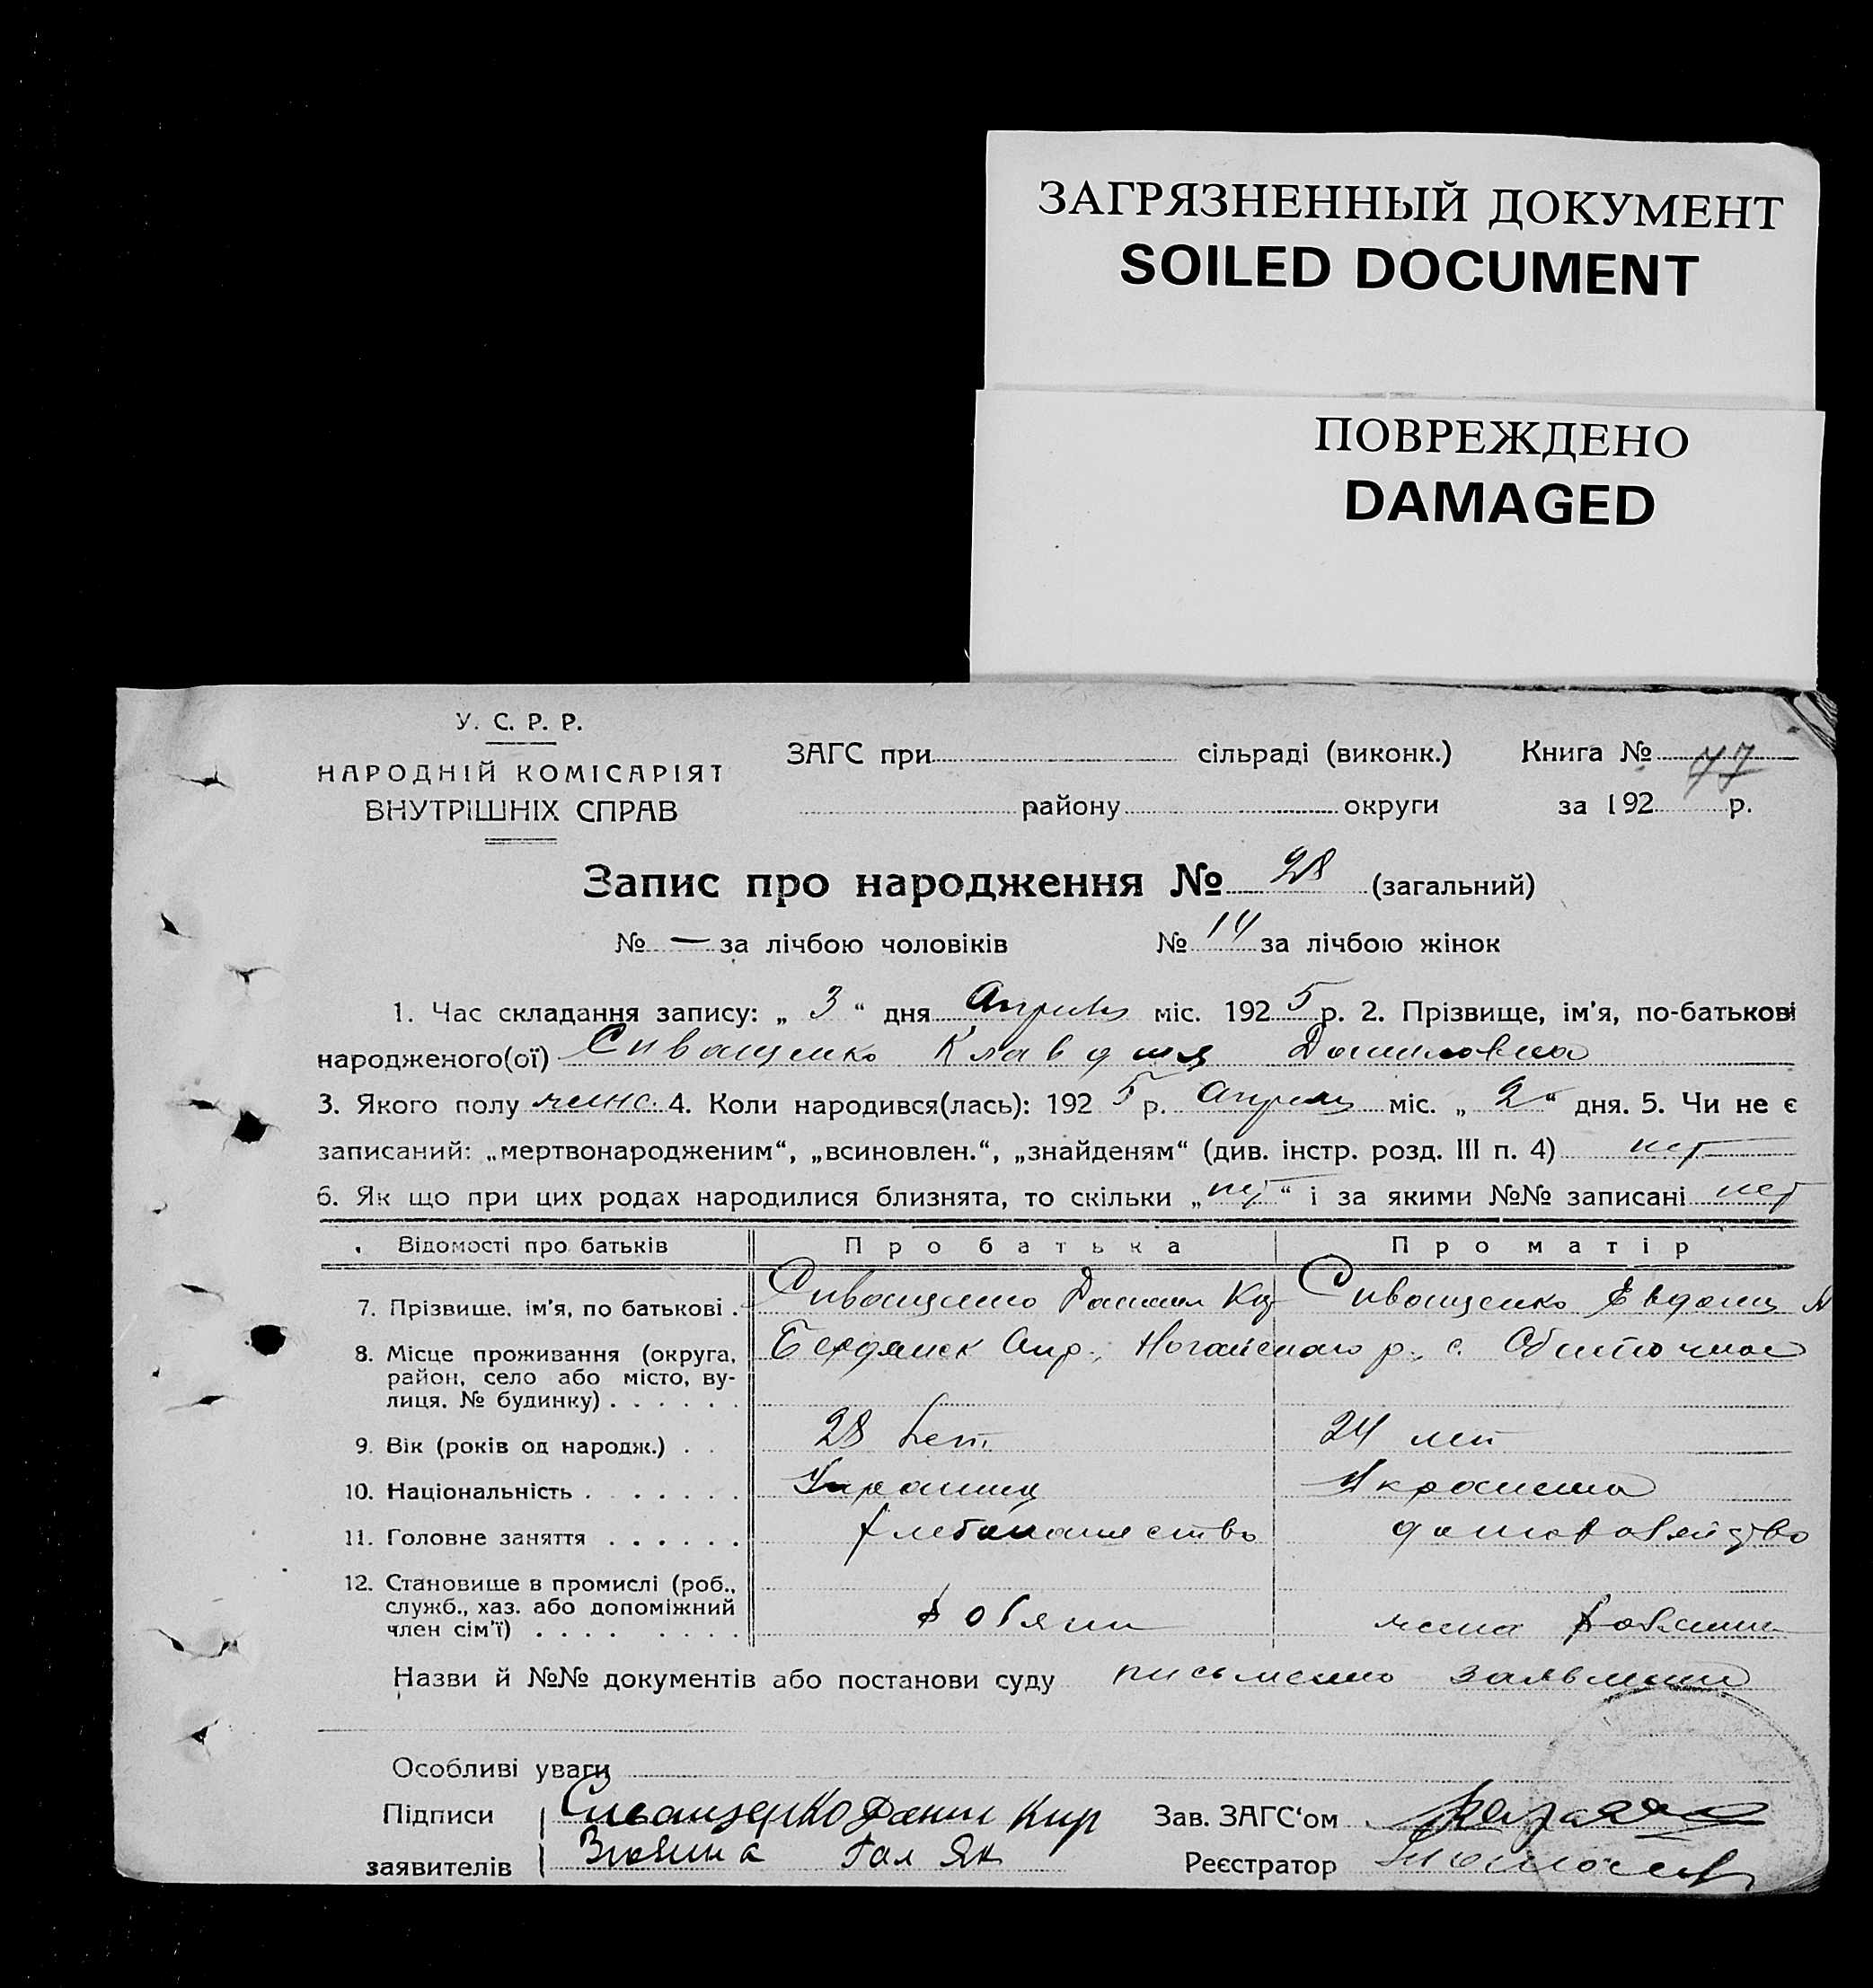 ЗАГРЯЗНЕННЫЙ ДОКУМЕНТ
SOILED DOCUMENT
ПОВРЕЖДЕНО
DAMAGED
У. С. Р. Р.
НАРОДНІЙ КОМІСАРІЯТ
ВНУТРІШНІХ СПРАВ
ЗАГС при сільраді (виконк.) Книга №
району округи за 192 р.
Запис про народження № 28 (загальний)
№ — за лічбою чоловіків № 14 за лічбою жінок
1. Час складання запису: „ 3 “ дня Апреля міс. 192 5 р. 2. Прізвище, ім'я, по-батькові
народженого(ої) Сиващенко Клавдия Даниловна
3. Якого полу женс. 4. Коли народився(лась): 192 5 р. Апреля міс. „ 2 “ дня. 5. Чи не є
записаний: „мертвонародженим“, „всиновлен.“, „знайденям“ (див. інстр. розд. III п. 4) нет
6. Як що при цих родах народилися близнята, то скільки „ нет “ і за якими №№ записані нет
Відомості про батьків Про батька Про матір
7. Прізвище, ім'я, по батькові . Сиващенко Даниил Кир Сиващенко Евдокия
8. Місце проживання (округа, район, село або місто, вулиця, № будинку) . . . . . . Бердянск Окр., Ногайского р., с. Обиточное
9. Вік (років од народж.) . . 28 лет 24 лет
10. Національність . . . . . . Украинец Украинка
11. Головне заняття . . . . . . хлебопашество домохозяйство
12. Становище в промислі (роб., служб., хаз. або допоміжний член сім'ї) . . . . . . . . хозяин жена хозяина
Назви й №№ документів або постанови суду письменно заявлении
Особливі уваги
Підписи Сиващенко Данил Кир Зав. ЗАГС‘ом
заявителів Гал Як Реєстратор